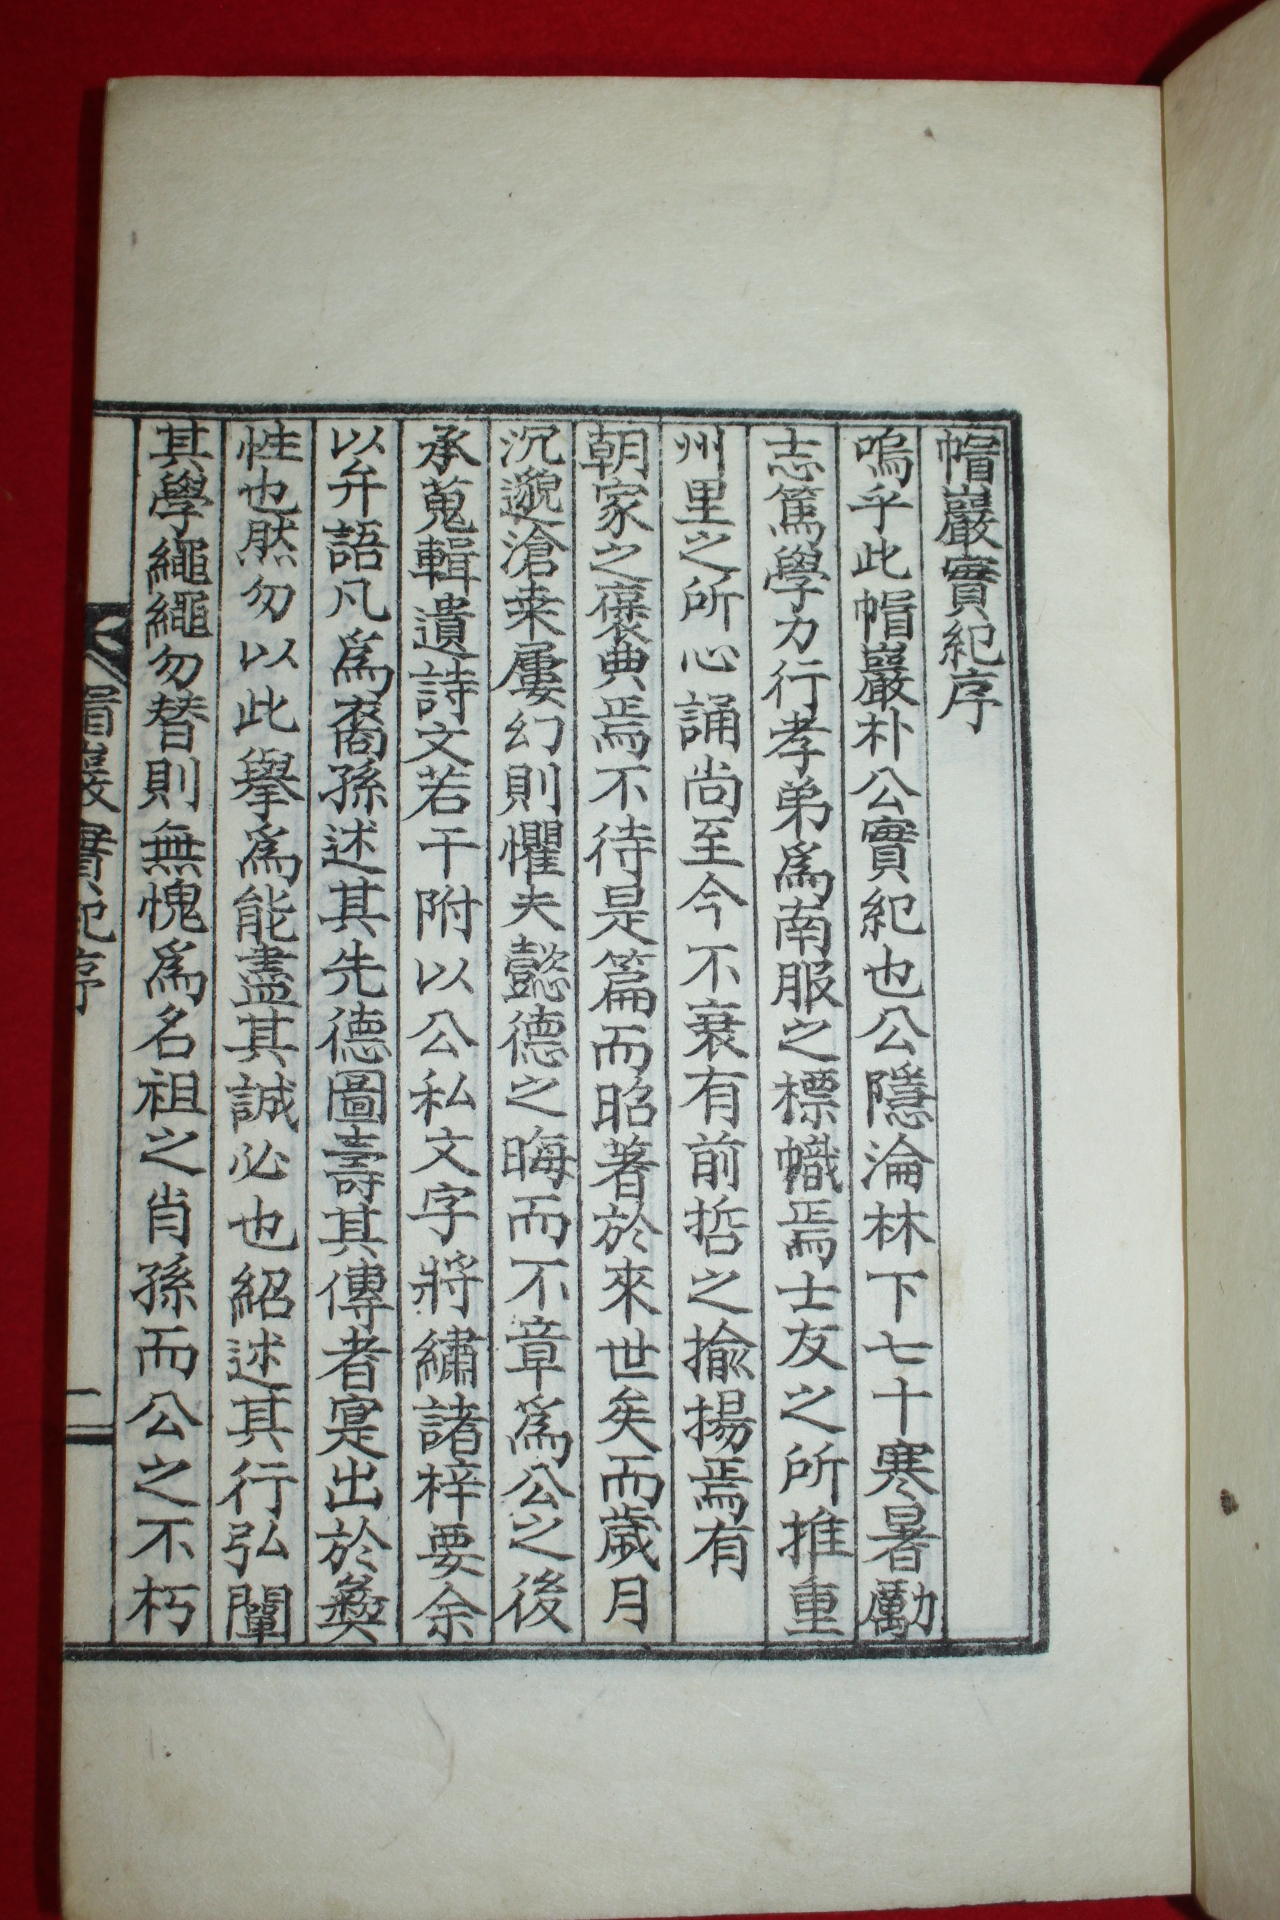 帽巖實紀序
嗚乎此帽巖朴公實紀也公隱淪林下七十寒暑勵
志篤學力行孝弟爲南服之標幟焉士友之所推重
州里之所心誦尚至今不衰有前哲之揄揚焉有
朝家之襃典焉不待是篇而昭著於來世矣而歲月
沉邈滄桒屢幻則懼夫懿德之晦而不章爲公之後
承蒐輯遺詩文若干附以公私文字將繡諸梓要余
以弁語凡爲裔孫述其先德圖壽其傳者寔出於彜
性也然勿以此擧爲能盡其誠必也紹述其行弘闡
其學繩繩勿替則無愧爲名祖之肖孫而公之不朽
帽巖實紀序